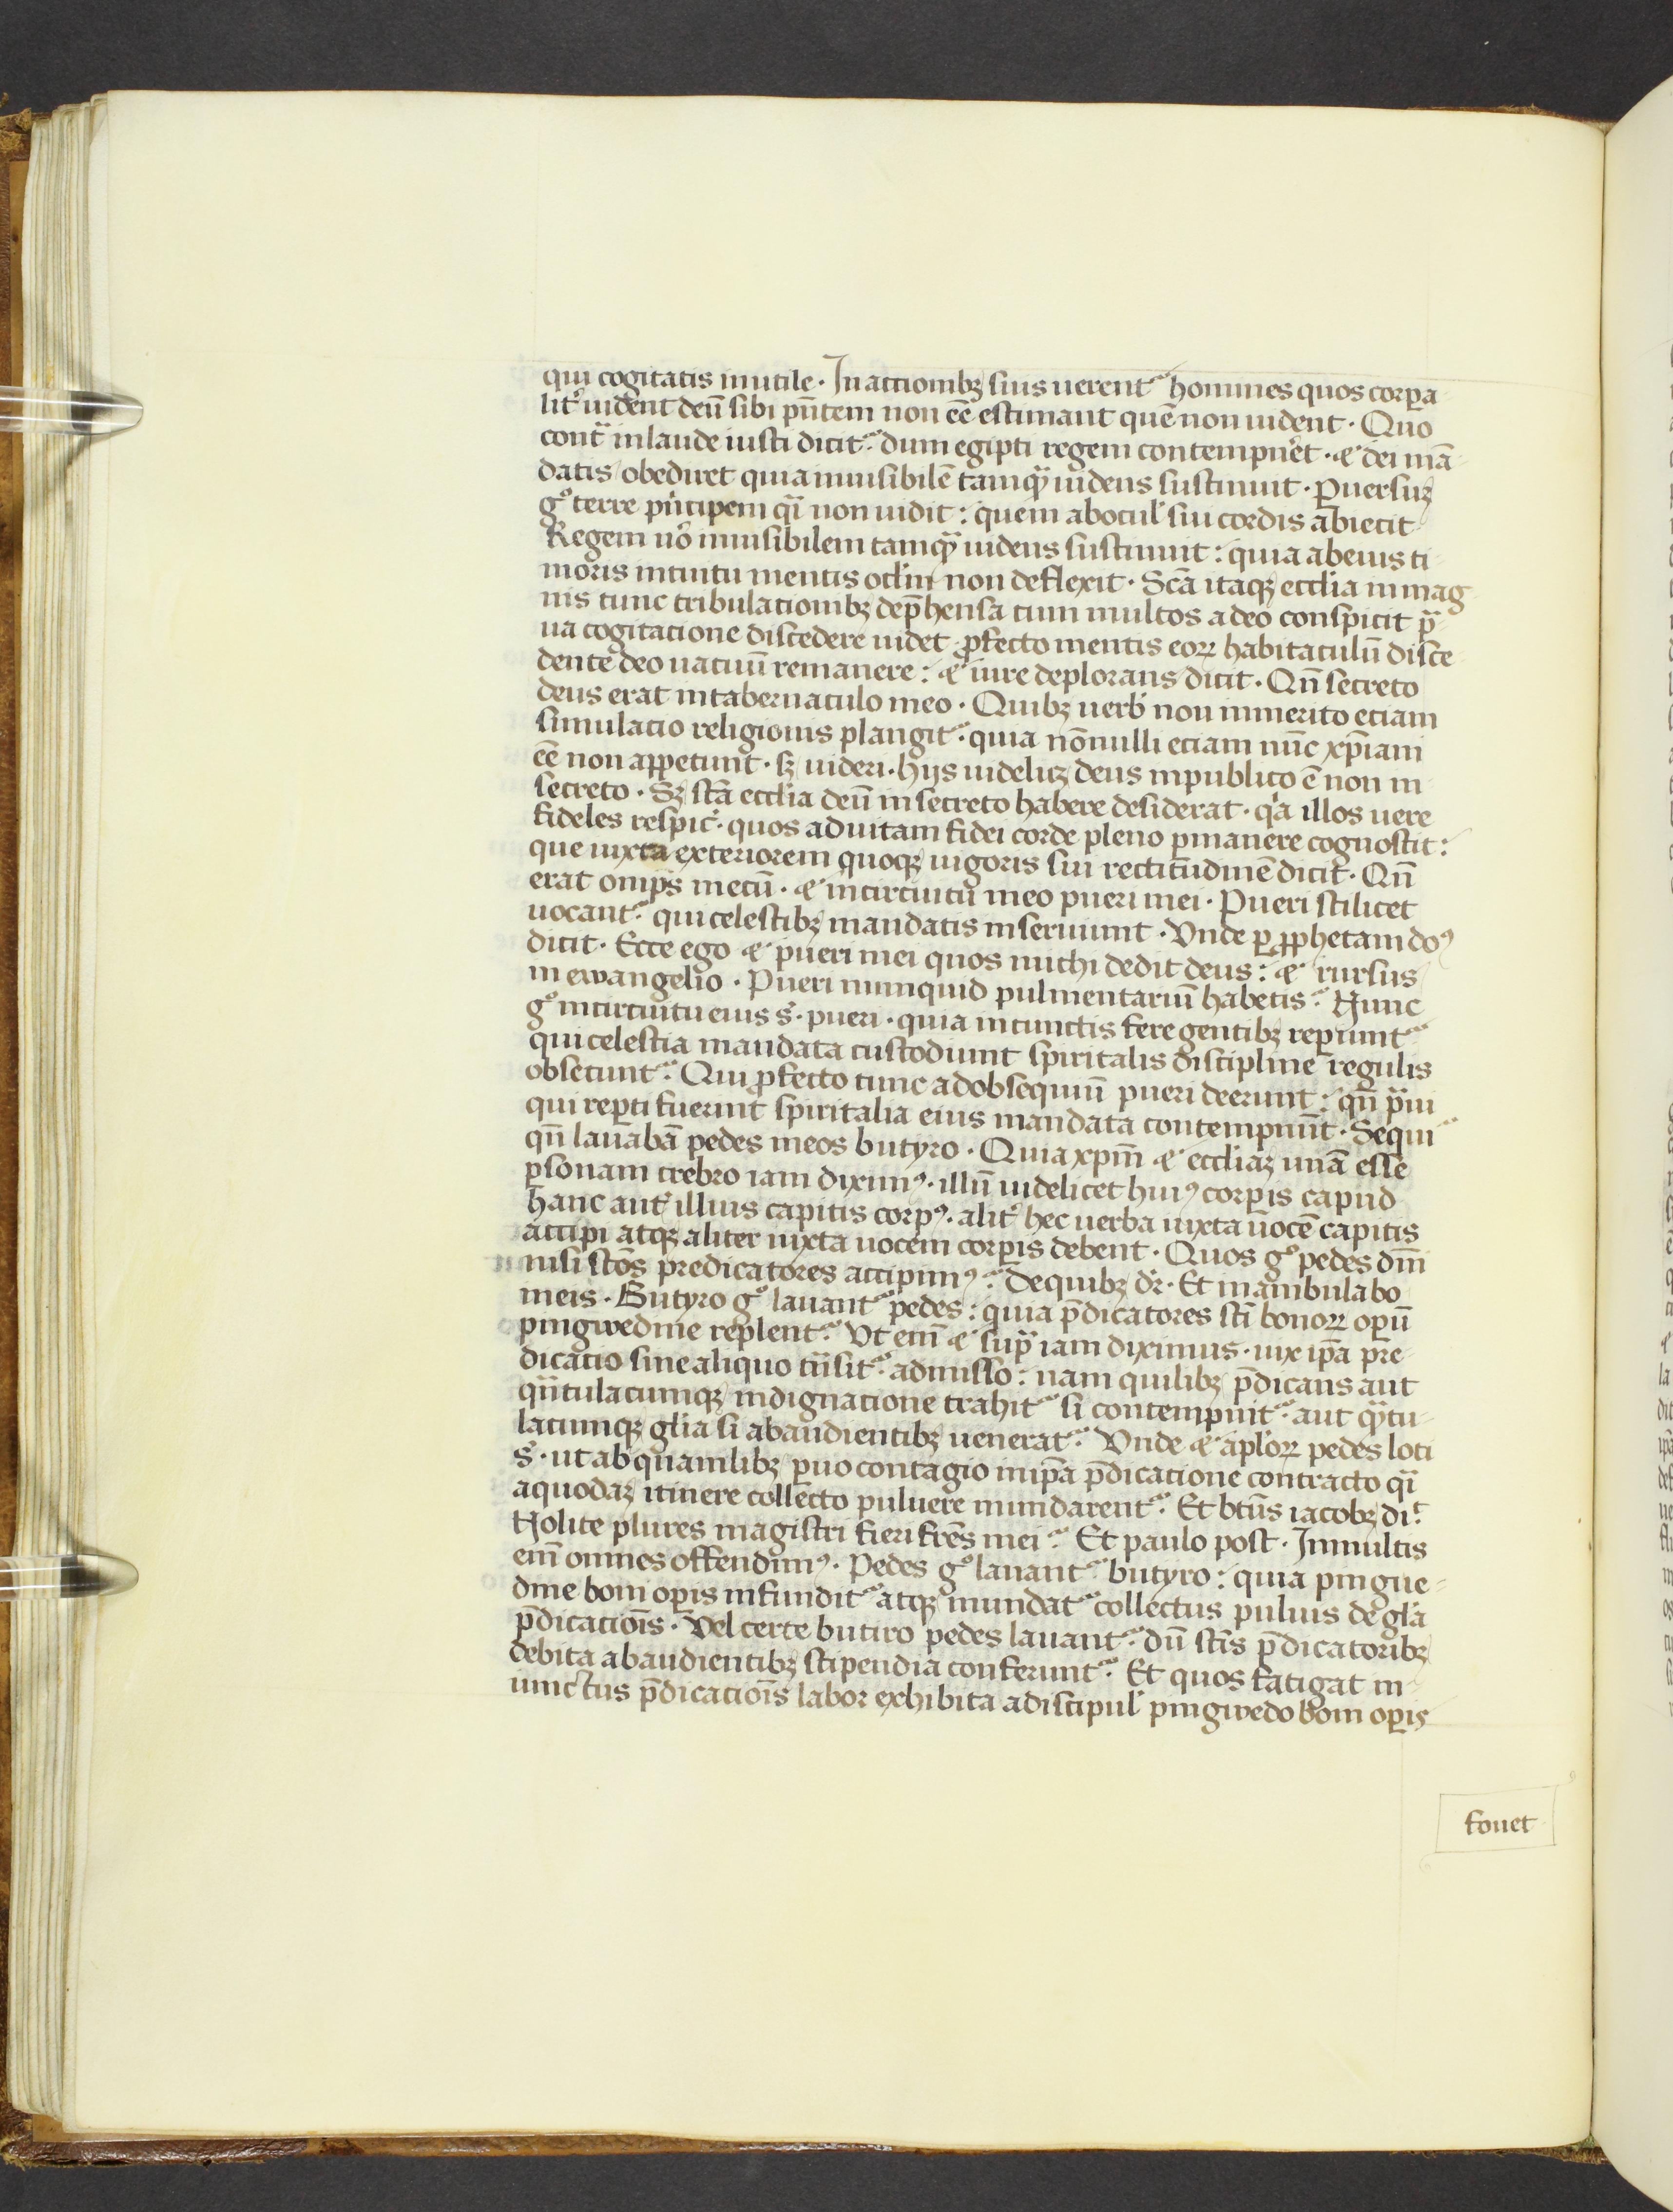 qui cogitatis inutile · In actionibꝫ suis uerentᷣ homines quos corꝑa
lit᷑ uident deū sibi pn̄tem non eē estimant quē non uident · Quo
contᷓ in laude iusti dicitᷣ · dum egipti regem contempn̄et · ⁊ dei mā
datis obediret quia inuisibilē tamqᷓ uidens sustinuit · Puersuꝫ
gͦ terre pͥncipem qͣi non uidit : quem ab ocul᷑ sui cordis abiecit
Regem uͦ inuisibilem tamqᷓ uidens sustinuit : quia ab eius ti
moris intuitu mentis ocl̄m non deflexit · Scā itaqꝫ eccl̄ia in mag
nis tunc tribulacionibꝫ dep̄hensa cum multos a deo conspicit pͣ
ua cogitacione discedere uidet ꝓfecto mentis eoꝝ habitaculū disce
dente deo uacuū remanere : ⁊ iure deplorans dicit · Qn̄ secreto
deus erat in tabernaculo meo · Quibꝫ uerb᷑ non inmerito etiam
simulacio religionis plangitᷣ · quia nōnulli etiam nūc xp̄iani
eē non appetunt · sꝫ uideri · hijs uidelicꝫ deus in publico ē non in
secreto · Sꝫ scā eccl̄ia deū in secreto habere desiderat · qͥa illos uere
fideles respic᷑ · quos ad uitam fidei corde pleno ꝑmanere cognoscit :
que iuxta exteriorem quoqꝫ uigoris sui rectitudinē dicit · Qn̄
erat omīps mecū · ⁊ in circuitu meo pueri mei · Pueri scilicet
uocantᷣ · qui celestibꝫ mandatis inseruiunt · Vnde ꝑ ꝓphetam doꝰ
dicit · Ecce ego ⁊ pueri mei quos michi dedit deus : ⁊ rursus
in ewangelio · Pueri numquid pulmentariū habetis · Nunc
gͦ in circuitu eius s̄ · pueri · quia in cunctis fere gentibꝫ reꝑiuntᷣ
qui celestia mandata custodiunt spiritalis discipline regulis
obsecuntᷣ · Qui ꝓfecto tunc ad obsequiū pueri deerunt : qn̄ pͣui
qui reꝑti fuerint spiritalia eius mandata contempnūt · Sequitᷣ
qn̄ lauabā pedes meos butyro · Quia xpm̄ ⁊ eccl̄iaꝫ unā esse
ꝑsonam crebro iam diximꝰ · illū uidelicet huiꝰ corꝑis capud
hanc aut᷑ illius capitis corpꝰ · alit᷑ hec uerba iuxta uocē capitis
accipi atqꝫ aliter iuxta uocem corꝑis debent · Quos gͦ pedes dn̄i
nisi scōs predicatores accipimꝰ · de quibꝫ dr̄ · Et inambulabo
meis · Butyro gͦ lauantᷣ pedes : quia p̄dicatores scī bonoꝝ oꝑū
pingwedine replentᷣ · Vt em̄ ⁊ supͣ iam diximus · uix ip̄a pre
dicatio sine aliquo tn̄sitᷣ · admisso : nam quilibꝫ p̄dicans aut
qͣntulacumqꝫ indignatione trahitᷣ si contempnitᷣ · aut qͣntu
lacumqꝫ gl̄ia si ab audientibꝫ ueneratᷣ · Vnde ⁊ apl̄oꝝ pedes loti
s̄ · ut ab quamlibꝫ ꝑuo contagio in ip̄a p̄dicatione contracto qͣi
a quodaꝫ itinere collecto puluere mundarentᷣ · Et btūs iacobꝫ diͭ
Nolite plures magistri fieri fr̄es mei · Et paulo post · In multis
em̄ omnes offendimꝰ · Pedes gͦ lauantᷣ butyro : quia pingue
dine boni oꝑis infunditᷣ atqꝫ mundatᷣ collectus puluis de gl̄a
p̄dicacionis · Vel certe butiro pedes lauantᷣ · dū scīs p̄dicatoribꝫ
debita ab audientibꝫ stipendia conferuntᷣ · Et quos fatigat in
iunctus p̄dicacionis labor exhibita a discipul᷑ pingwedo boni oꝑis
fouet